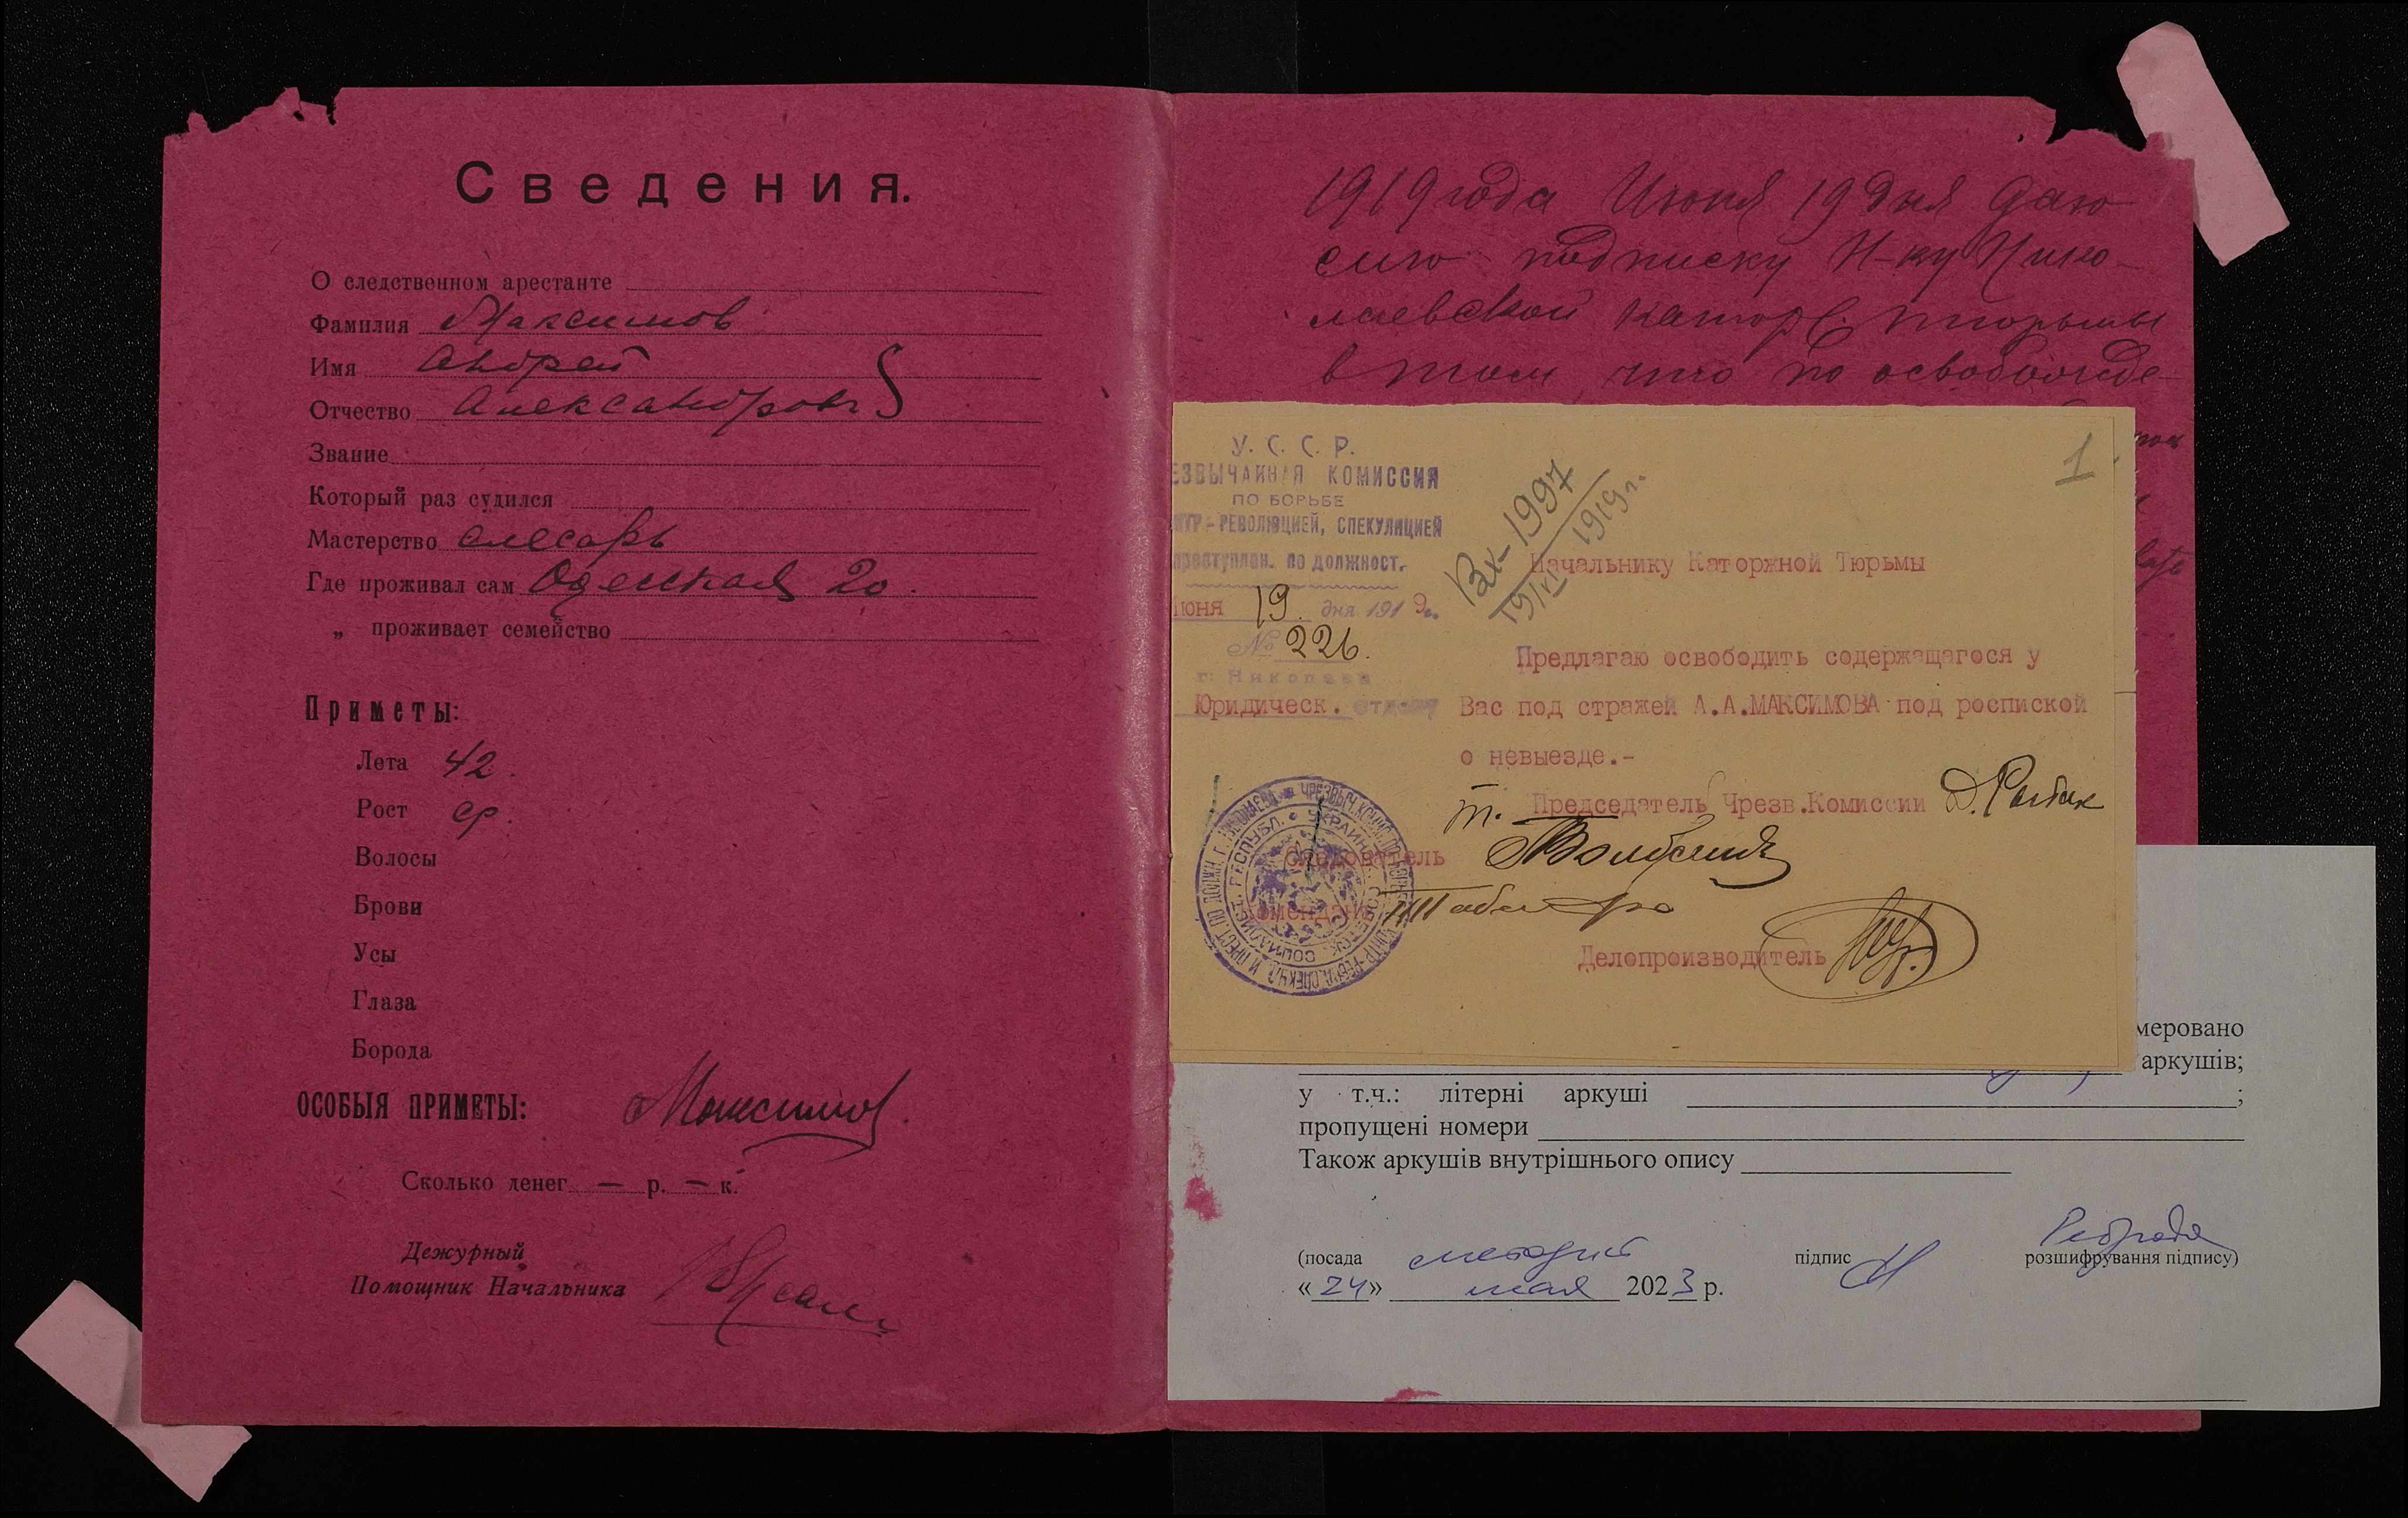 Сведения.
О следственном арестанте
Фамилия Максимов
Имя Андрей
Отчество Александров
Звание
Который раз судился
Мастерство слесарь
Где проживал сам Одесская 20.
„ проживает семейство
Приметы:
Лета 42.
Рост ср.
Волосы
Брови
Усы
Глаза
Борода
ОСОБЫЯ ПРИМЕТЫ: Максимов.
Сколько денег — р. — к.
Дежурный
Помощник Начальника
1919 года Июня 19 дня даю
сию подписку Н-ку Нико-
лаевской каторж. тюрьмы
в том, что по освобожде-
1
У. С. С. Р.
ЕЗВЫЧАЙНАЯ КОМИССИЯ
ПО БОРЬБЕ
НТР-РЕВОЛЮЦИЕЙ, СПЕКУЛЯЦИЕЙ
преступлен. по должност.
юня 19. дня 1919г.
№ 226.
г. Николаев
Юридическ. отдел
Вх-1997
19/VI 1919г.
Начальнику Каторжной Тюрьмы
Предлагаю освободить содержащагося у
Вас под стражей А.А.МАКСИМОВА под роспиской
о невыезде.-
т. Председатель Чрезв.Комиссии Д. Рыбак
Следователь
омендант
Делопроизводитель
меровано
аркушів;
у т.ч.: літерні аркуші ;
пропущені номери
Також аркушів внутрішнього опису
(посада методист підпис розшифрування підпису)
«24» мая 2023 р.